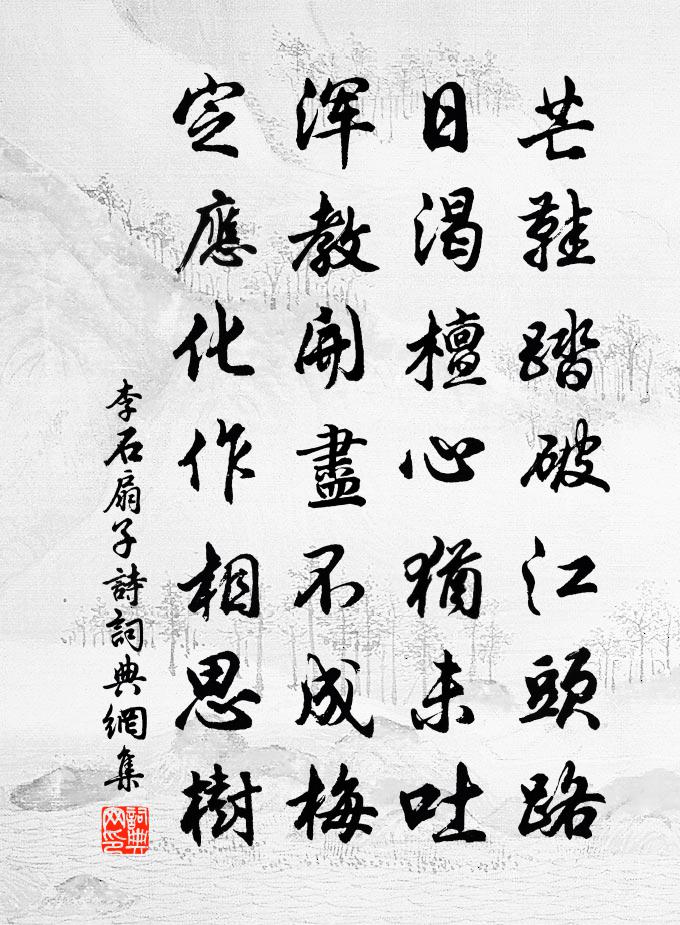 芒鞋踏破江頭路
日渴檀心猶未吐
渾教開盡不成梅
定應化作相思樹
李石扇子詩詞典網集
詞典網印